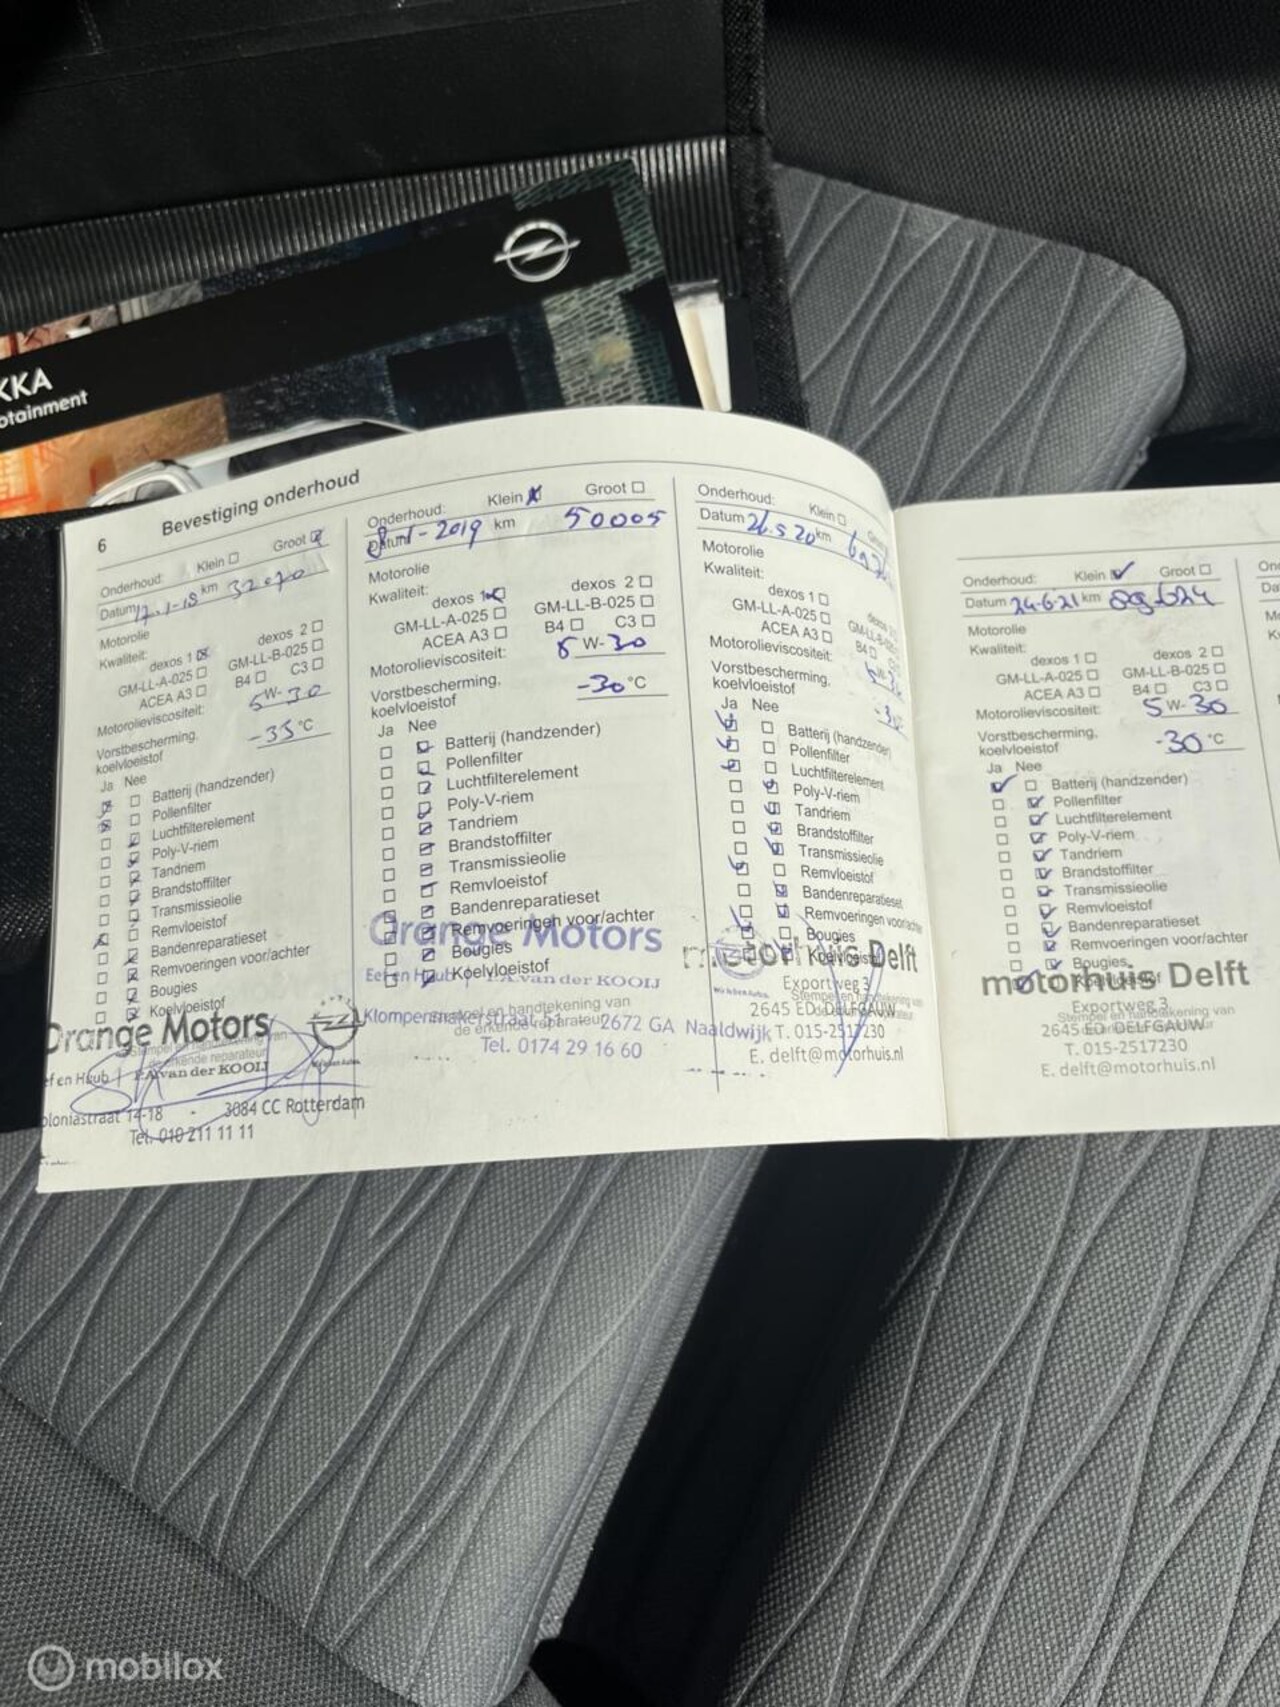 KKA
otainment
6
Bevestiging onderhoud
Onderhoud: Klein Groot
Datum 17-1-18 km 32070
Motorolie
Kwaliteit:
dexos 1 dexos 2
GM-LL-A-025 GM-LL-B-025
ACEA A3 B4 C3
Motorolieviscositeit: 5W-30
Vorstbescherming,
koelvloeistof -35 °C
Ja Nee
Batterij (handzender)
Pollenfilter
Luchtfilterelement
Poly-V-riem
Tandriem
Brandstoffilter
Transmissieolie
Remvloeistof
Bandenreparatieset
Remvoeringen voor/achter
Bougies
Koelvloeistof
Orange Motors
Stempel en handtekening van
de erkende reparateur
ef en Huub | F.A. van der KOOIJ
oloniastraat 14-18 - 3084 CC Rotterdam
Tel. 010 211 11 11
Onderhoud: Klein Groot
Datum -2019 km 50005
Motorolie
Kwaliteit:
dexos 1 dexos 2
GM-LL-A-025 GM-LL-B-025
ACEA A3 B4 C3
Motorolieviscositeit: 5 W-30
Vorstbescherming,
koelvloeistof -30 °C
Ja Nee
Batterij (handzender)
Pollenfilter
Luchtfilterelement
Poly-V-riem
Tandriem
Brandstoffilter
Transmissieolie
Remvloeistof
Bandenreparatieset
Remvoeringen voor/achter
Bougies
Koelvloeistof
Orange Motors
Eef en Huub | F.A. van der KOOIJ
Stempel en handtekening van
de erkende reparateur
Klompenmakerstraat 51 - 2672 GA Naaldwijk
Tel. 0174 29 16 60
Onderhoud: Klein
Datum 26.5 20 km
Motorolie
Kwaliteit:
dexos 1
GM-LL-A-025
ACEA A3 B4
Motorolieviscositeit:
Vorstbescherming,
koelvloeistof
Ja Nee
Batterij (handzender)
Pollenfilter
Luchtfilterelement
Poly-V-riem
Tandriem
Brandstoffilter
Transmissieolie
Remvloeistof
Bandenreparatieset
Remvoeringen voor/achter
Bougies
Koelvloeistof
motorhuis Delft
Exportweg 3
2645 ED DELFGAUW
T. 015-2517230
E. delft@motorhuis.nl
Onderhoud: Klein Groot
Datum 24-6-21 km
Motorolie
Kwaliteit:
dexos 1 dexos 2
GM-LL-A-025 GM-LL-B-025
ACEA A3 B4 C3
Motorolieviscositeit: 5 W-30
Vorstbescherming,
koelvloeistof -30 °C
Ja Nee
Batterij (handzender)
Pollenfilter
Luchtfilterelement
Poly-V-riem
Tandriem
Brandstoffilter
Transmissieolie
Remvloeistof
Bandenreparatieset
Remvoeringen voor/achter
Bougies
Koelvloeistof
motorhuis Delft
Exportweg 3
2645 ED DELFGAUW
T. 015-2517230
E. delft@motorhuis.nl
mobilox